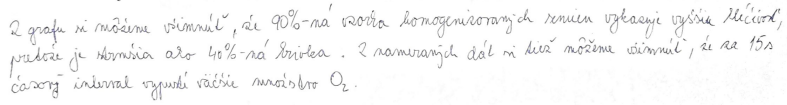 Z grafu si môžeme všimnúť, že 90%-ná vzorka homogenizovaných semien vykazuje vyššiu klíčivosť,
pretože je strmšia ako 40%-ná krivka. Z nameraných dát si tiež môžeme všimnúť, že za 15s
časový interval vypustí väčšie množstvo O₂.